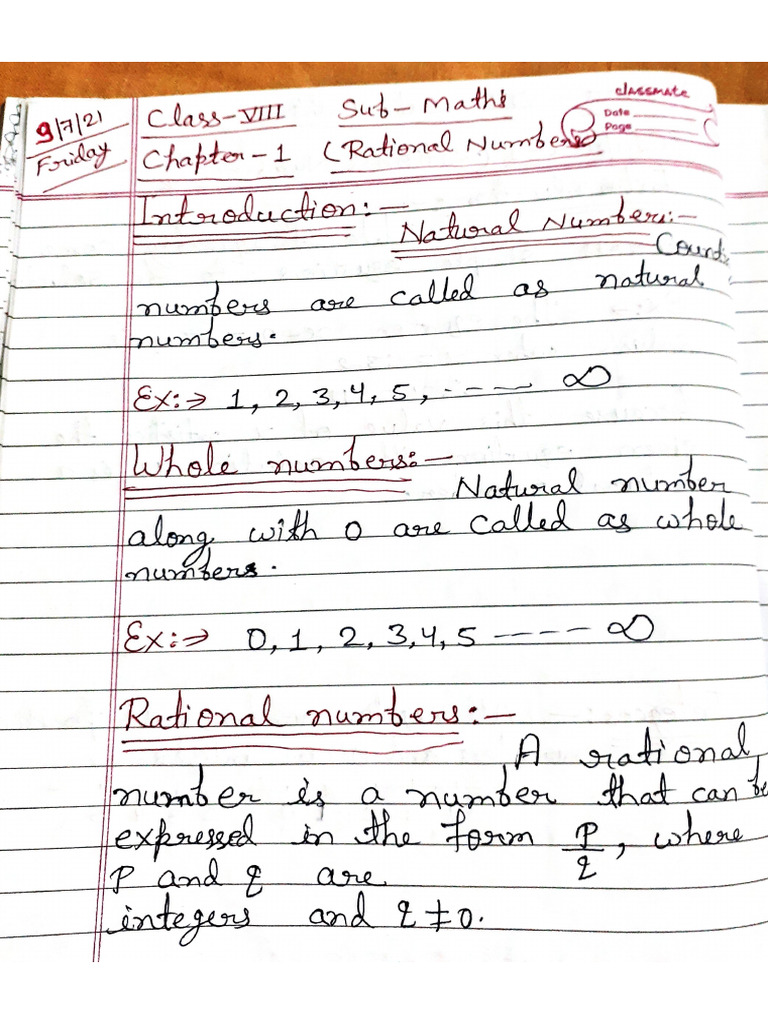 classmate
Date
Page
9/7/21
Friday
Class-VIII Sub-Maths
Chapter-1 (Rational Numbers)
Introduction:-
Natural Numbers:-
numbers are called as natural
numbers.
Ex:⇒ 1, 2, 3, 4, 5, ---- ∞
Whole numbers:-
Natural number
along with 0 are called as whole
numbers.
Ex:⇒ 0, 1, 2, 3, 4, 5 ---- ∞
Rational numbers:-
A rational
number is a number that can be
expressed in the form P/q, where
P and q are
integers and q ≠ 0.